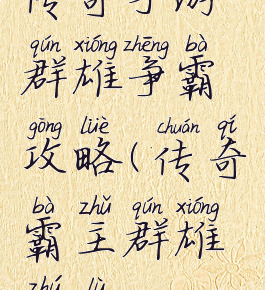 传奇手游
qún xióng zhēng bà
群雄争霸
gōng lüè chuán qí
攻略(传奇
bà zhǔ qún xióng
霸主群雄
zhú lù